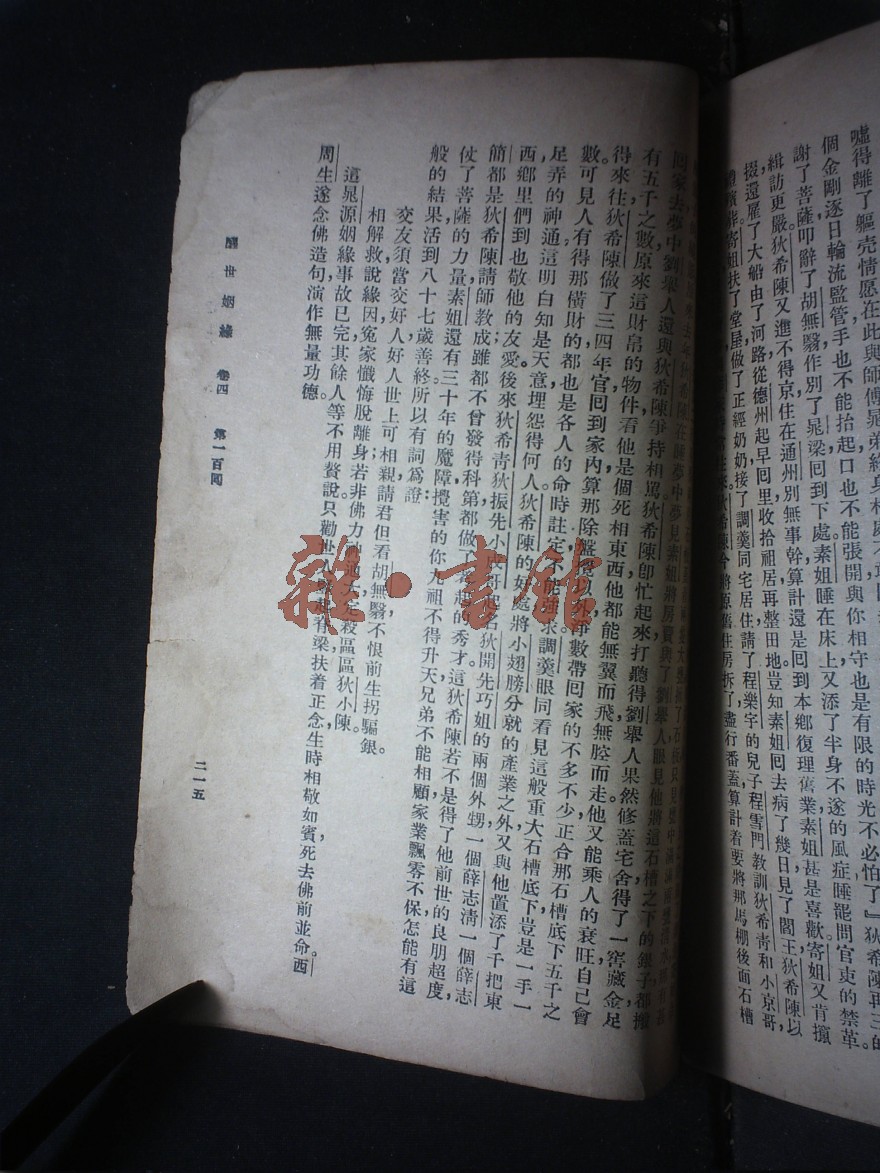 噓得離了軀壳情愿在此與師傅晁弟終身相處不
個金剛逐日輪流監管手也不能抬起口也不能張開與你相守也是有限的時光不必怕了』狄希陳再三的
謝了菩薩叩辭了胡無翳作別了晁梁回到下處素姐睡在床上又添了半身不遂的風症睡罷問官吏的禁革。
緝訪更嚴狄希陳又進不得京住在通州別無事幹算計還是回到本鄉復理舊業素姐甚是喜歡寄姐又肯攛
掇還雇了大船由了河路從德州起早回里收拾祖居再整田地豈知素姐回去病了幾日見了閻王狄希陳以
禮殯葬寄姐扶了堂屋做了正經奶奶接了調羹同宅居住請了程樂宇的兒子程雪門教訓狄希青和小京哥
狄希陳今將原舊住房拆了盡行番蓋算計着要將那馬棚後面石槽
回家去夢中劉舉人還與狄希陳爭持相罵狄希陳卽忙起來打聽得劉舉人果然修蓋宅舍得了一窖藏金足
有五千之數原來這財帛的物件看他是個死相東西他都能無翼而飛無脛而走他又能乘人的衰旺自己會
得來往狄希陳做了三四年官回到家內算那除盤攪以外淨數帶回家的不多不少正合那石槽底下五千之
數可見人有得那橫財的都也是各人的命時註定不能強求調羹眼同看見這般重大石槽底下豈是一手一
足弄的神通這明白知是天意埋怨得何人狄希陳的好處將小翅膀分就的產業之外又與他置添了千把東
西鄉里們到也敬他的友愛後來狄希青狄振先小京哥起名狄開先巧姐的兩個外甥一個薛志清一個薛志
簡都是狄希陳請師教成雖都不曾發得科第都做了尊起的秀才這狄希陳若不是得了他前世的良朋超度，
仗了菩薩的力量素姐還有三十年的魔障攪害的你大祖不得升天兄弟不能相顧家業飄零不保怎能有這
般的結果活到八十七歲善終所以有詞爲證：
交友須當交好人好人世上可相親請君但看胡無翳不恨前生拐騙銀。
相解救說緣因冤家懺悔脫離身若非佛力神通大定殺區區狄小陳。
這晁源姻緣事故已完其餘人等不用贅說只勸世人豎起脊梁扶着正念生時相敬如賓死去佛前並命西
周生遂念佛造句演作無量功德。
醒世姻緣　卷四　第一百囘　二一五
雜·書館